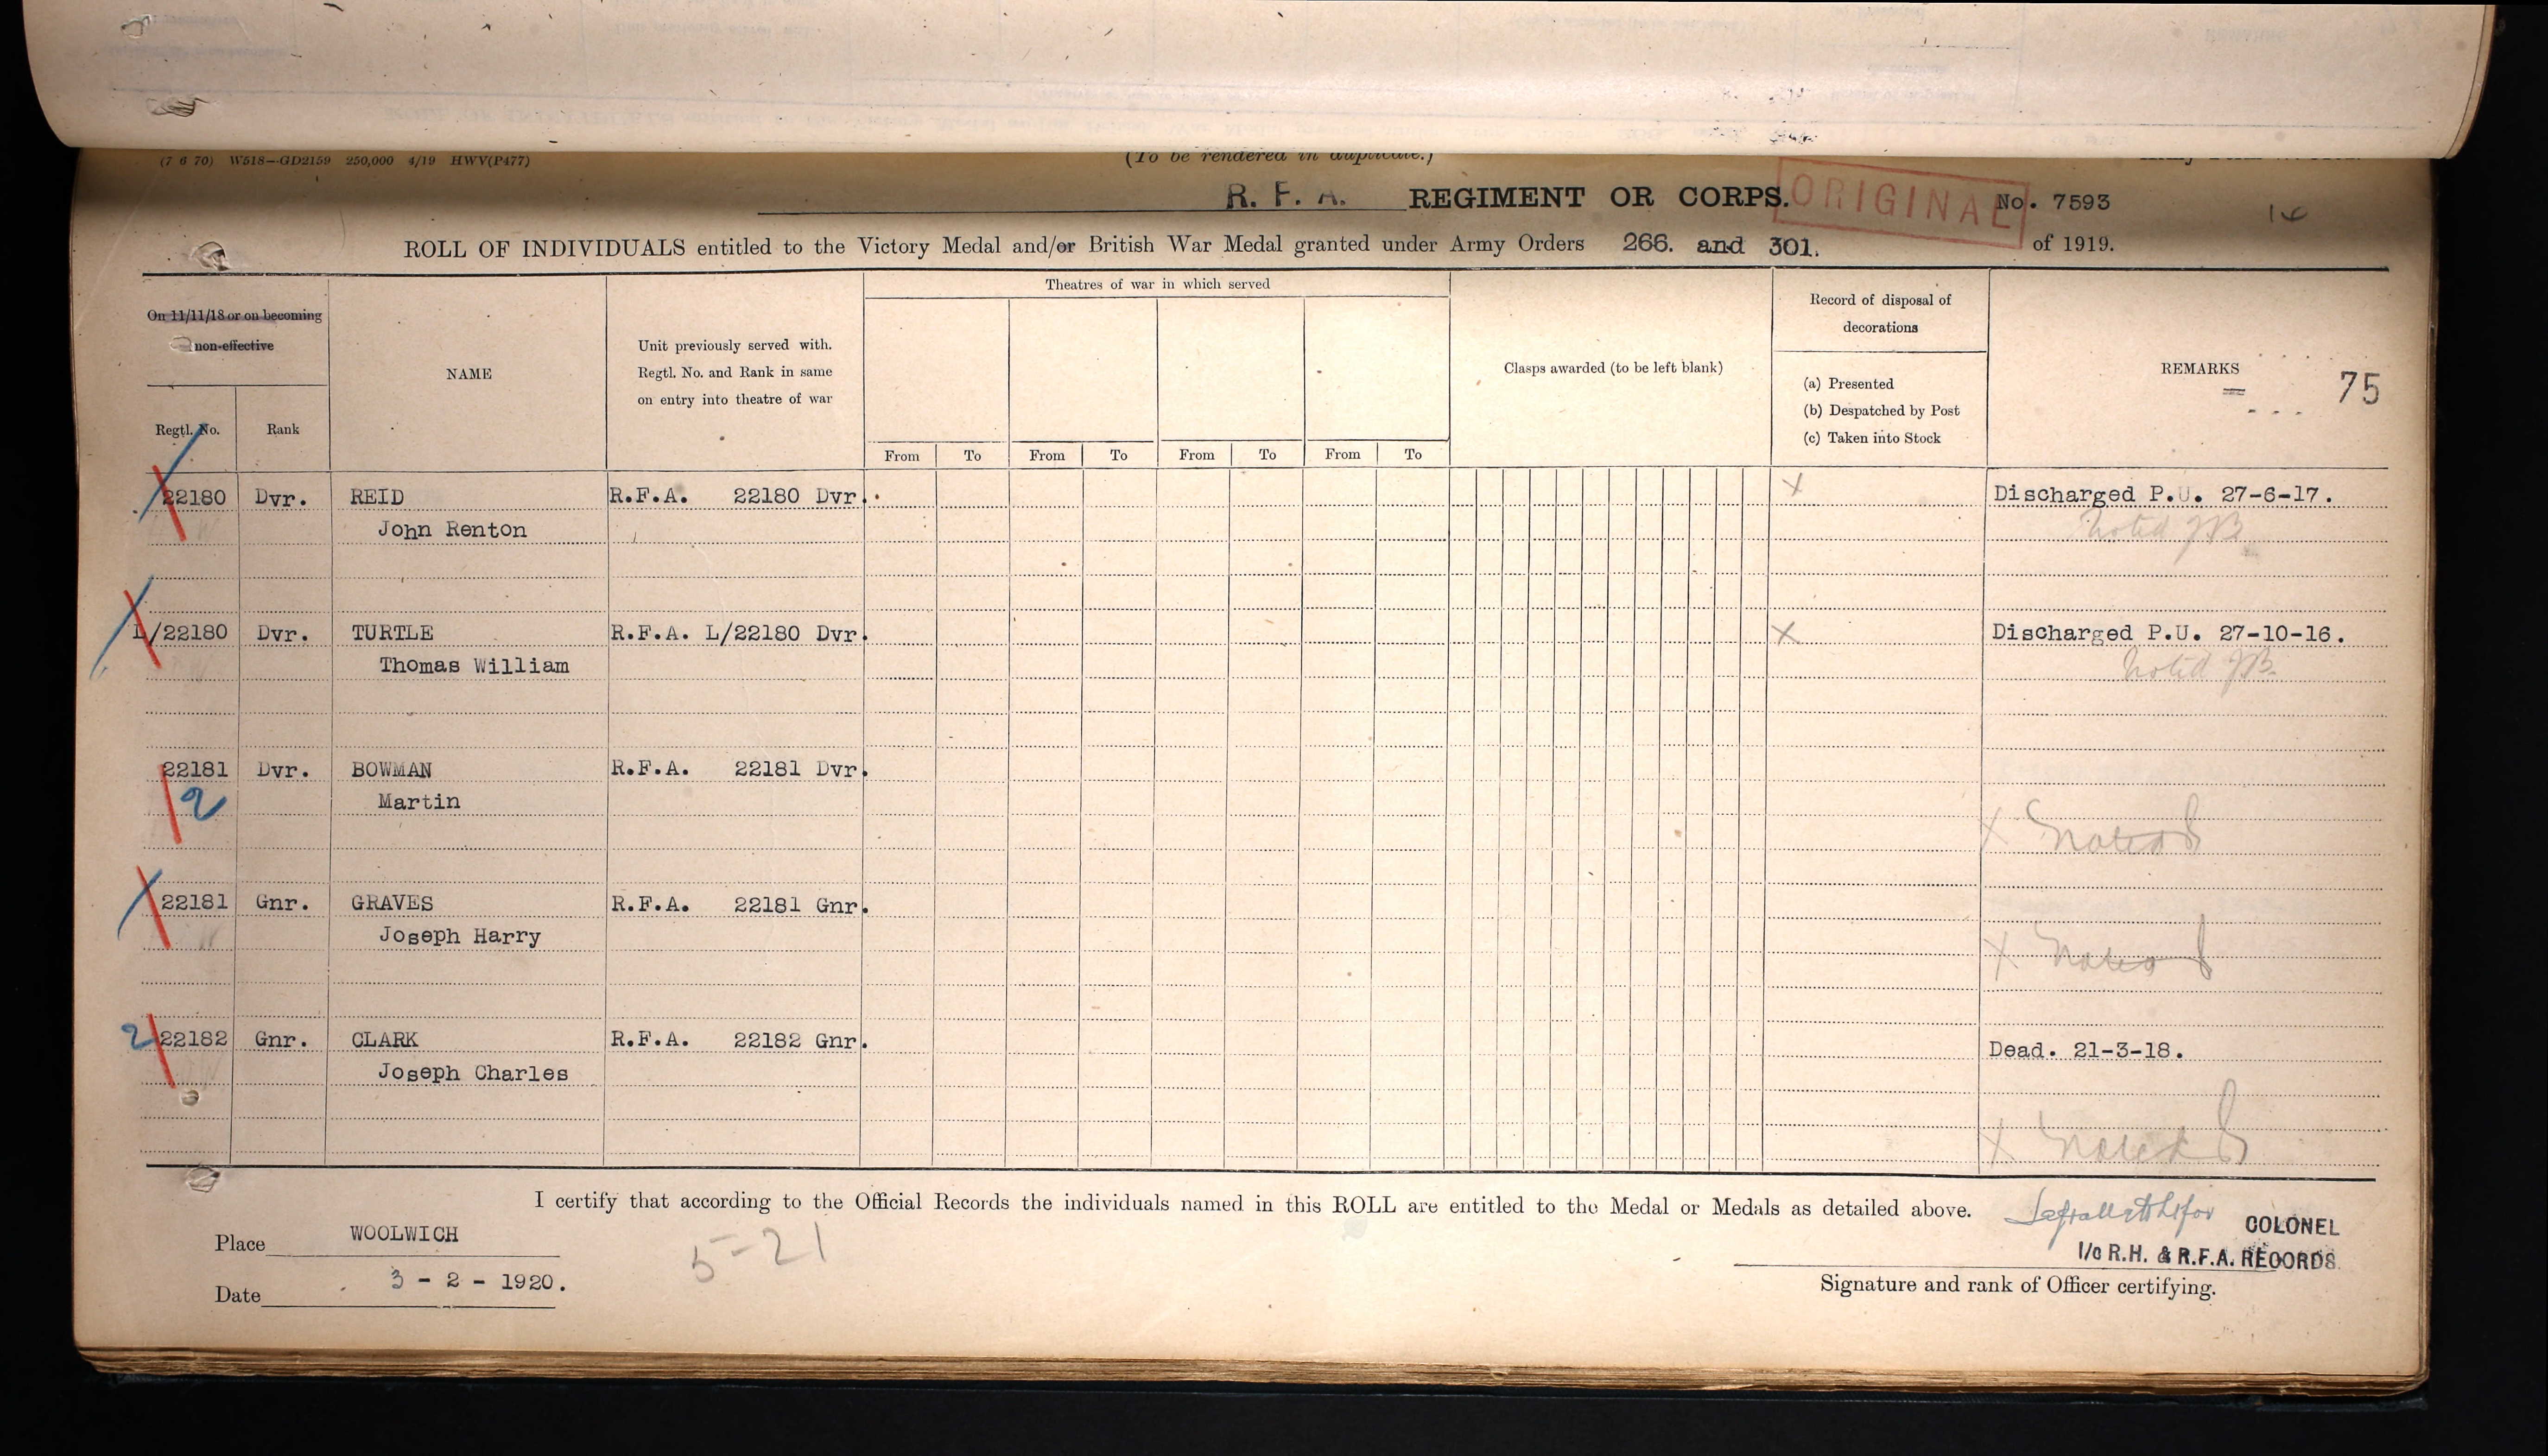 (7 6 70) W518—GD2159 250,000 4/19 HWV(P477)
(To be rendered in duplicate.)
R. F. A. REGIMENT OR CORPS.
ORIGINAL
No. 7593
ROLL OF INDIVIDUALS entitled to the Victory Medal and/or British War Medal granted under Army Orders 266. and 301. of 1919.
On 11/11/18 or on becoming
non-effective
Regtl. No.
Rank
NAME
Unit previously served with.
Regtl. No. and Rank in same
on entry into theatre of war
Theatres of war in which served
From To From To From To From To
Clasps awarded (to be left blank)
Record of disposal of
decorations
(a) Presented
(b) Despatched by Post
(c) Taken into Stock
REMARKS
75
22180 Dvr. REID R.F.A. 22180 Dvr. X Discharged P.U. 27-6-17.
John Renton Noted JB
L/22180 Dvr. TURTLE R.F.A. L/22180 Dvr. X Discharged P.U. 27-10-16.
Thomas William Noted JB
22181 Dvr. BOWMAN R.F.A. 22181 Dvr.
2 Martin
X Noted
22181 Gnr. GRAVES R.F.A. 22181 Gnr.
Joseph Harry
X Noted
2 22182 Gnr. CLARK R.F.A. 22182 Gnr. Dead. 21-3-18.
Joseph Charles
X Noted
I certify that according to the Official Records the individuals named in this ROLL are entitled to the Medal or Medals as detailed above.
Place WOOLWICH
Date 3 - 2 - 1920.
5-21
for COLONEL
I/c R.H. & R.F.A. RECORDS.
Signature and rank of Officer certifying.